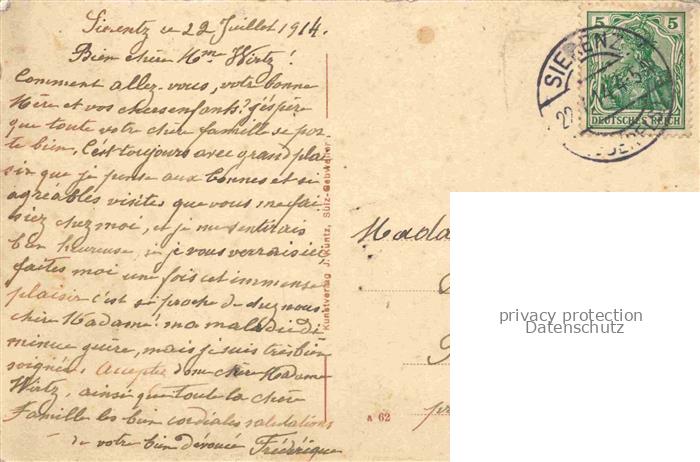 Sierentz le 22 Juillet 1914.
Bien chère Mme Wirtz!
Comment allez-vous, votre bonne
Mère et vos chers enfants? j'éspère
que toute votre chère famille se por-
te bien. C'est toujours avec grand plai
sir que je pense aux bonnes et si
agréables visites que vous me fai
siez chez moi, et je me sentirais
bien heureuse, si je vous verrais ici
faites moi une fois cet immense
plaisir c'est si proche de chez nous
chère Madame! ma maladie di
minue guère, mais je suis très bien
soignée. Acceptez donc chère Madame
Wirtz, ainsi que toute la chère
Famille les bien cordiales salutations
de votre bien dévouée Frédérique
Kunstverlag J. Kuntz, Sulz-Gebweiler
5 5
DEUTSCHES REICH
SIERENZ
Mada
A 62
privacy protection
Datenschutz